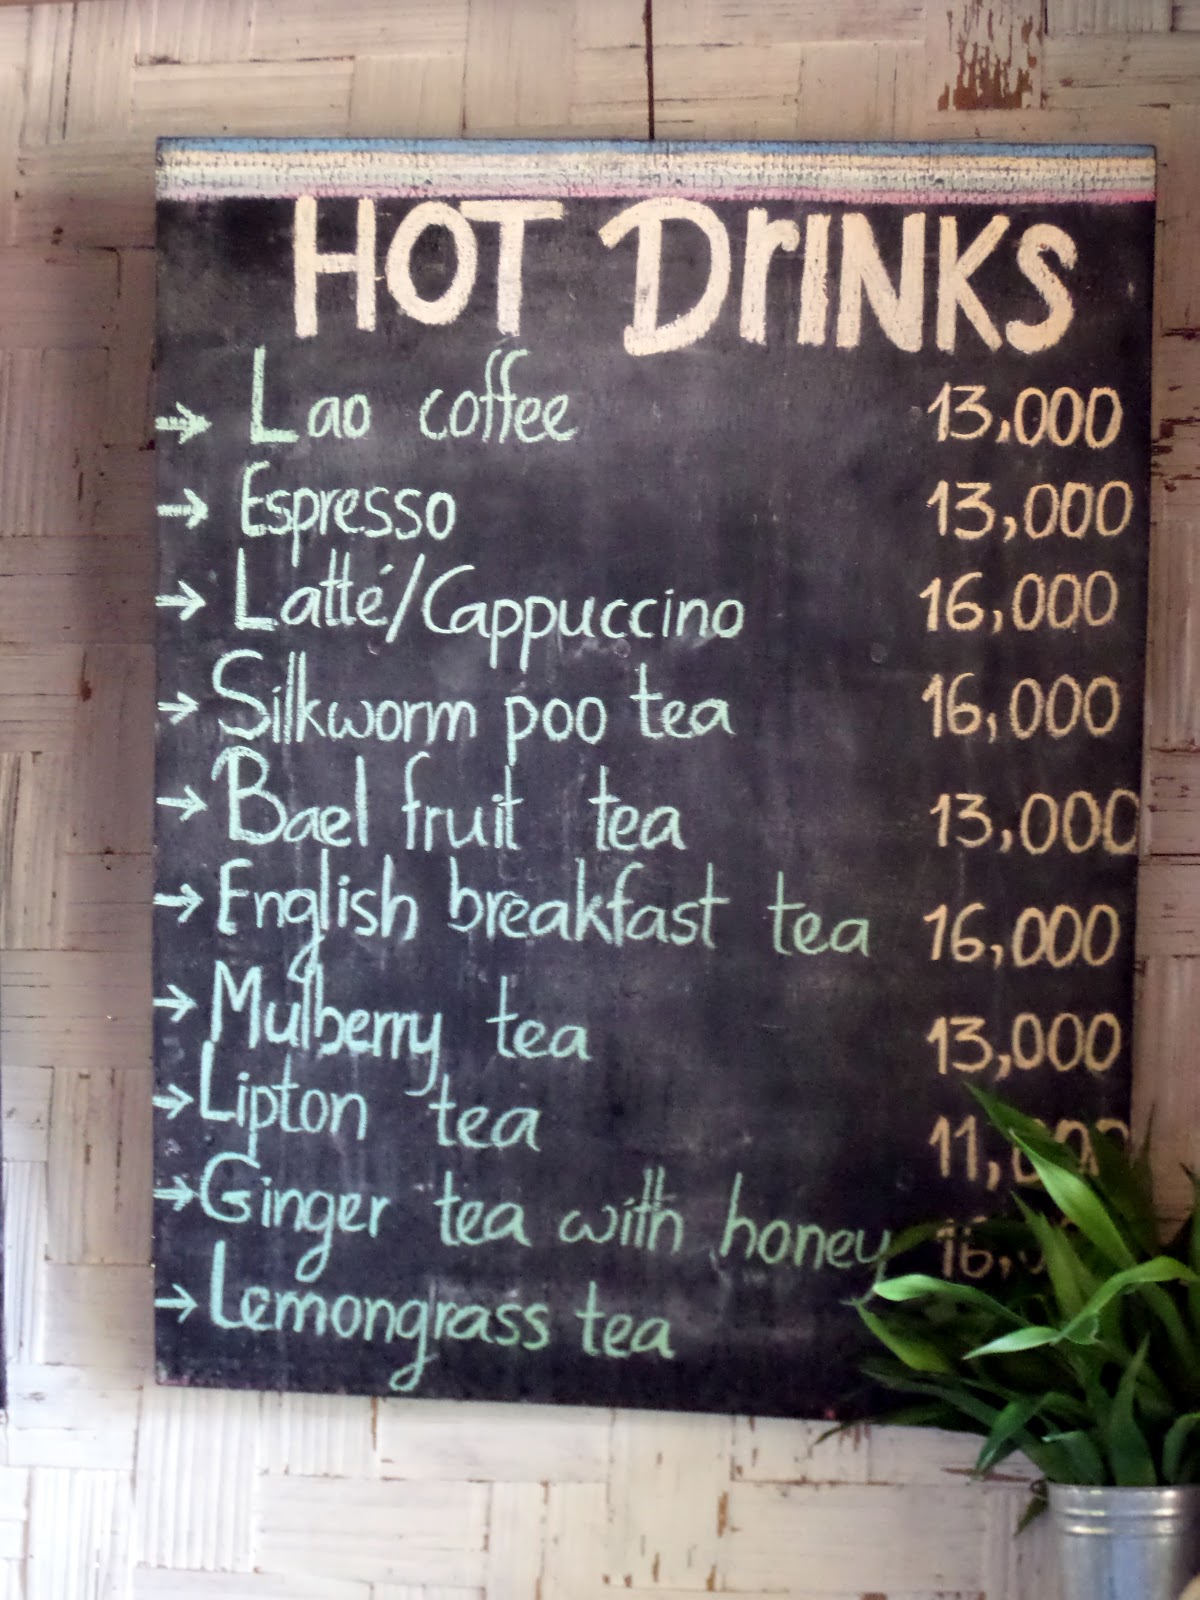 HOT DrINKS
Lao coffee 13,000
Espresso 13,000
Latté/Cappuccino 16,000
Silkworm poo tea 16,000
Bael fruit tea 13,000
English breakfast tea 16,000
Mulberry tea 13,000
Lipton tea 11,000
Ginger tea with honey
Lemongrass tea